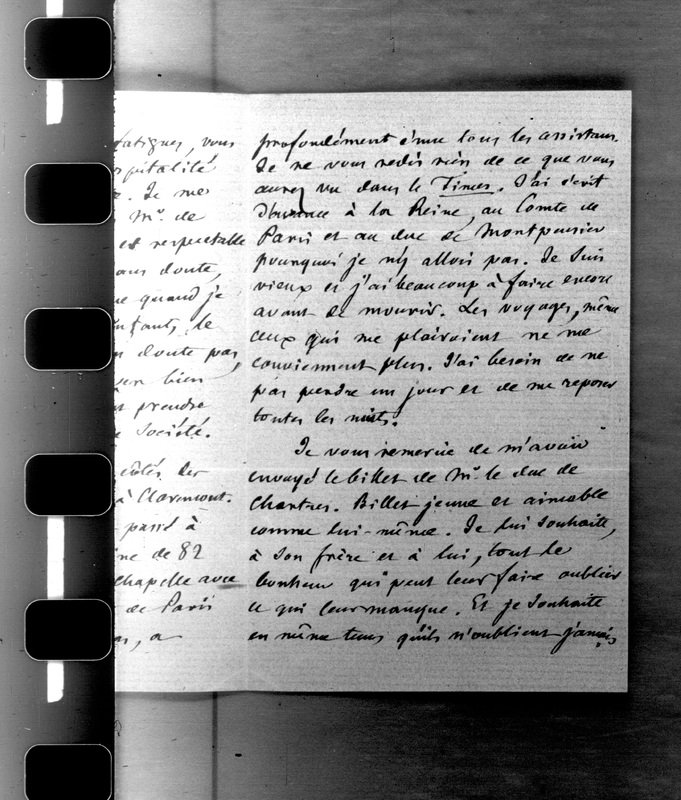 fatigues, vous
spitalité
. Je me
Mr. de
et respectable
ans doute,
e quand je
nfants, le
doute pas,
en bien
prendre
Société.
côtés des
à Claremont.
passé à
ne de 82
chapelle avec
de Paris
, a
profondément ému tous les assistans.
Je ne vous redis rien de ce que vous
aurez vu dans le Times. J'ai écrit
d'avance à la Reine, au Comte de
Paris et au duc de Montpensier
pourquoi je n'y allois pas. Je suis
vieux et j'ai beaucoup à faire encore
avant de mourir. Les voyages, même
ceux qui me plairaient ne me
conviennent plus. J'ai besoin de ne
pas perdre un jour et de me reposer
toutes les nuits.
Je vous remercie de m'avoir
envoyé le billet de Mr. le duc de
Chartres. Billet jeune et aimable
comme lui-même. Je lui souhaite,
à son frère et à lui, tout le
bonheur qui peut leur faire oublier
ce qui leur manque. Et je souhaite
en même tems qu'ils n'oublient jamais